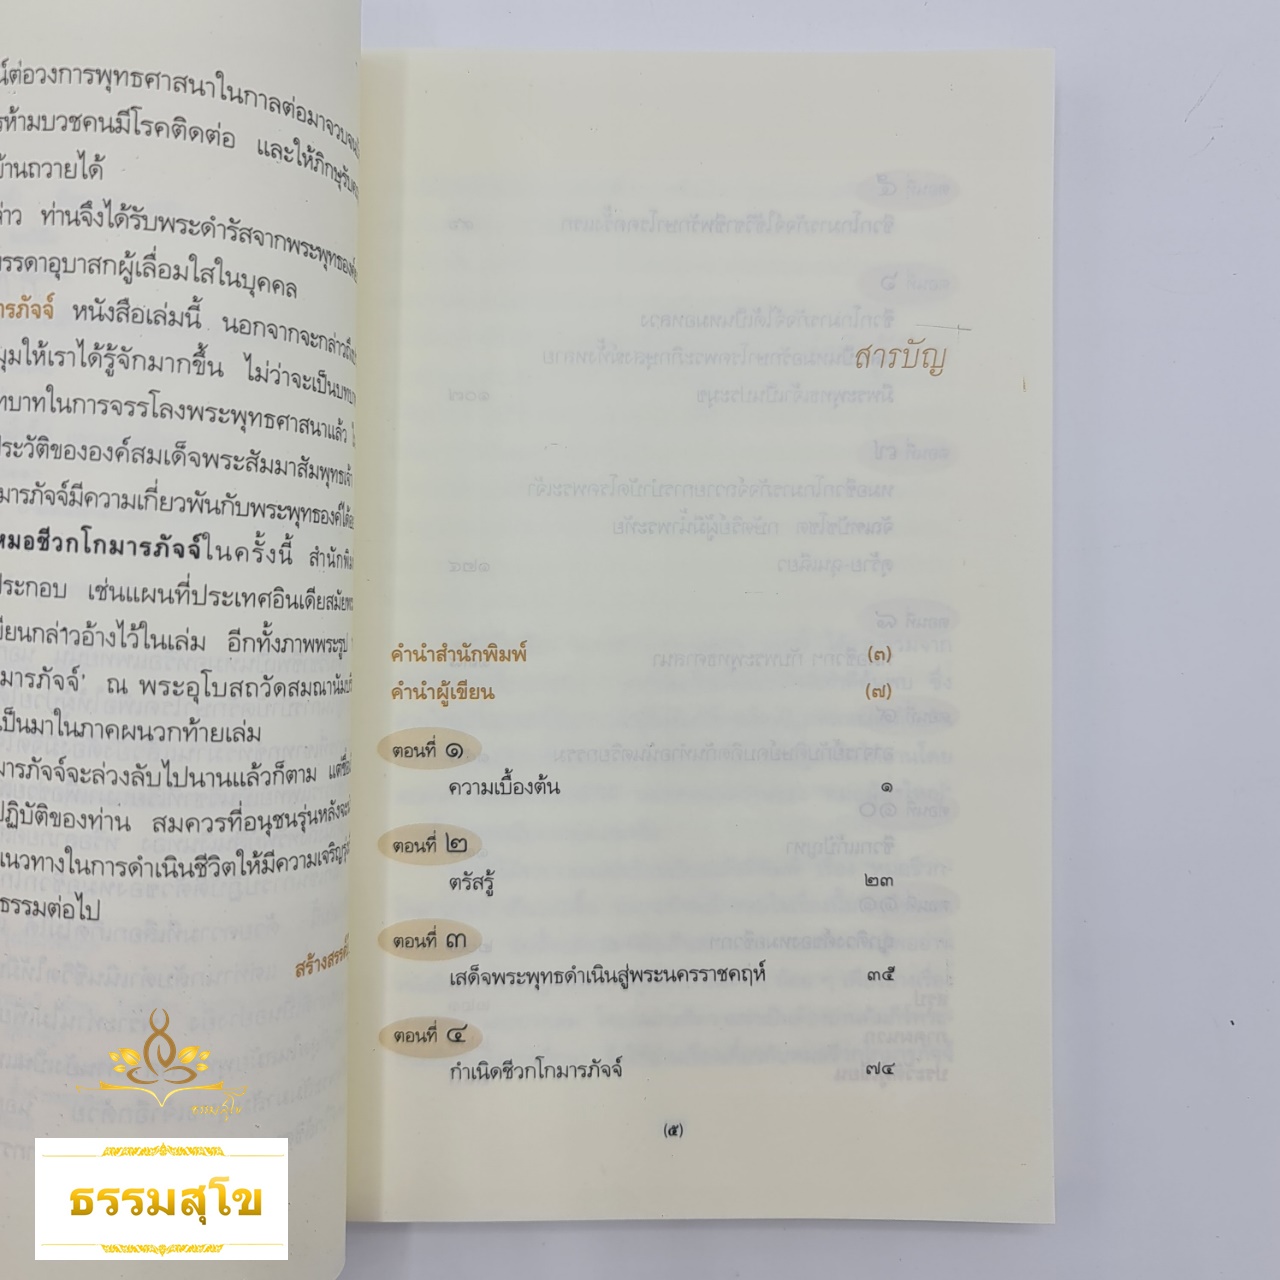 ต่อวงการพุทธศาสนาในกาลต่อมาจวบจน
ห้ามบวชคนมีโรคติดต่อ และให้ภิกษุรับ
บ้านถวายได้
ท่านจึงได้รับพระดำรัสจากพระพุทธองค์
บรรดาอุบาสกผู้เลื่อมใสในบุคคล
มารภัจจ์ หนังสือเล่มนี้ นอกจากจะกล่าวถึง
มุมให้เราได้รู้จักมากขึ้น ไม่ว่าจะเป็นบทบาท
ทบาทในการจรรโลงพระพุทธศาสนาแล้ว
ประวัติขององค์สมเด็จพระสัมมาสัมพุทธเจ้า
มารภัจจ์มีความเกี่ยวพันกับพระพุทธองค์
หมอชีวกโกมารภัจจ์ในครั้งนี้ สำนักพิม
ประกอบ เช่นแผนที่ประเทศอินเดียสมัย
ขียนกล่าวอ้างไว้ในเล่ม อีกทั้งภาพพระรูป
มารภัจจ์' ณ พระอุโบสถวัดสมณานัม
เป็นมาในภาคผนวกท้ายเล่ม
มารภัจจ์จะล่วงลับไปนานแล้วก็ตาม แต่
ปฏิบัติของท่าน สมควรที่อนุชนรุ่นหลังจะ
แนวทางในการดำเนินชีวิตให้มีความเจริญ
ธรรมต่อไป
สร้างสรรค์
สารบัญ
คำนำสำนักพิมพ์ (๓)
คำนำผู้เขียน (๗)
ตอนที่ ๑
ความเบื้องต้น ๑
ตอนที่ ๒
ตรัสรู้ ๒๓
ตอนที่ ๓
เสด็จพระพุทธดำเนินสู่พระนครราชคฤห์ ๓๕
ตอนที่ ๔
กำเนิดชีวกโกมารภัจจ์ ๗๔
(๕)
ธรรมสุโข
ธรรมสุโข